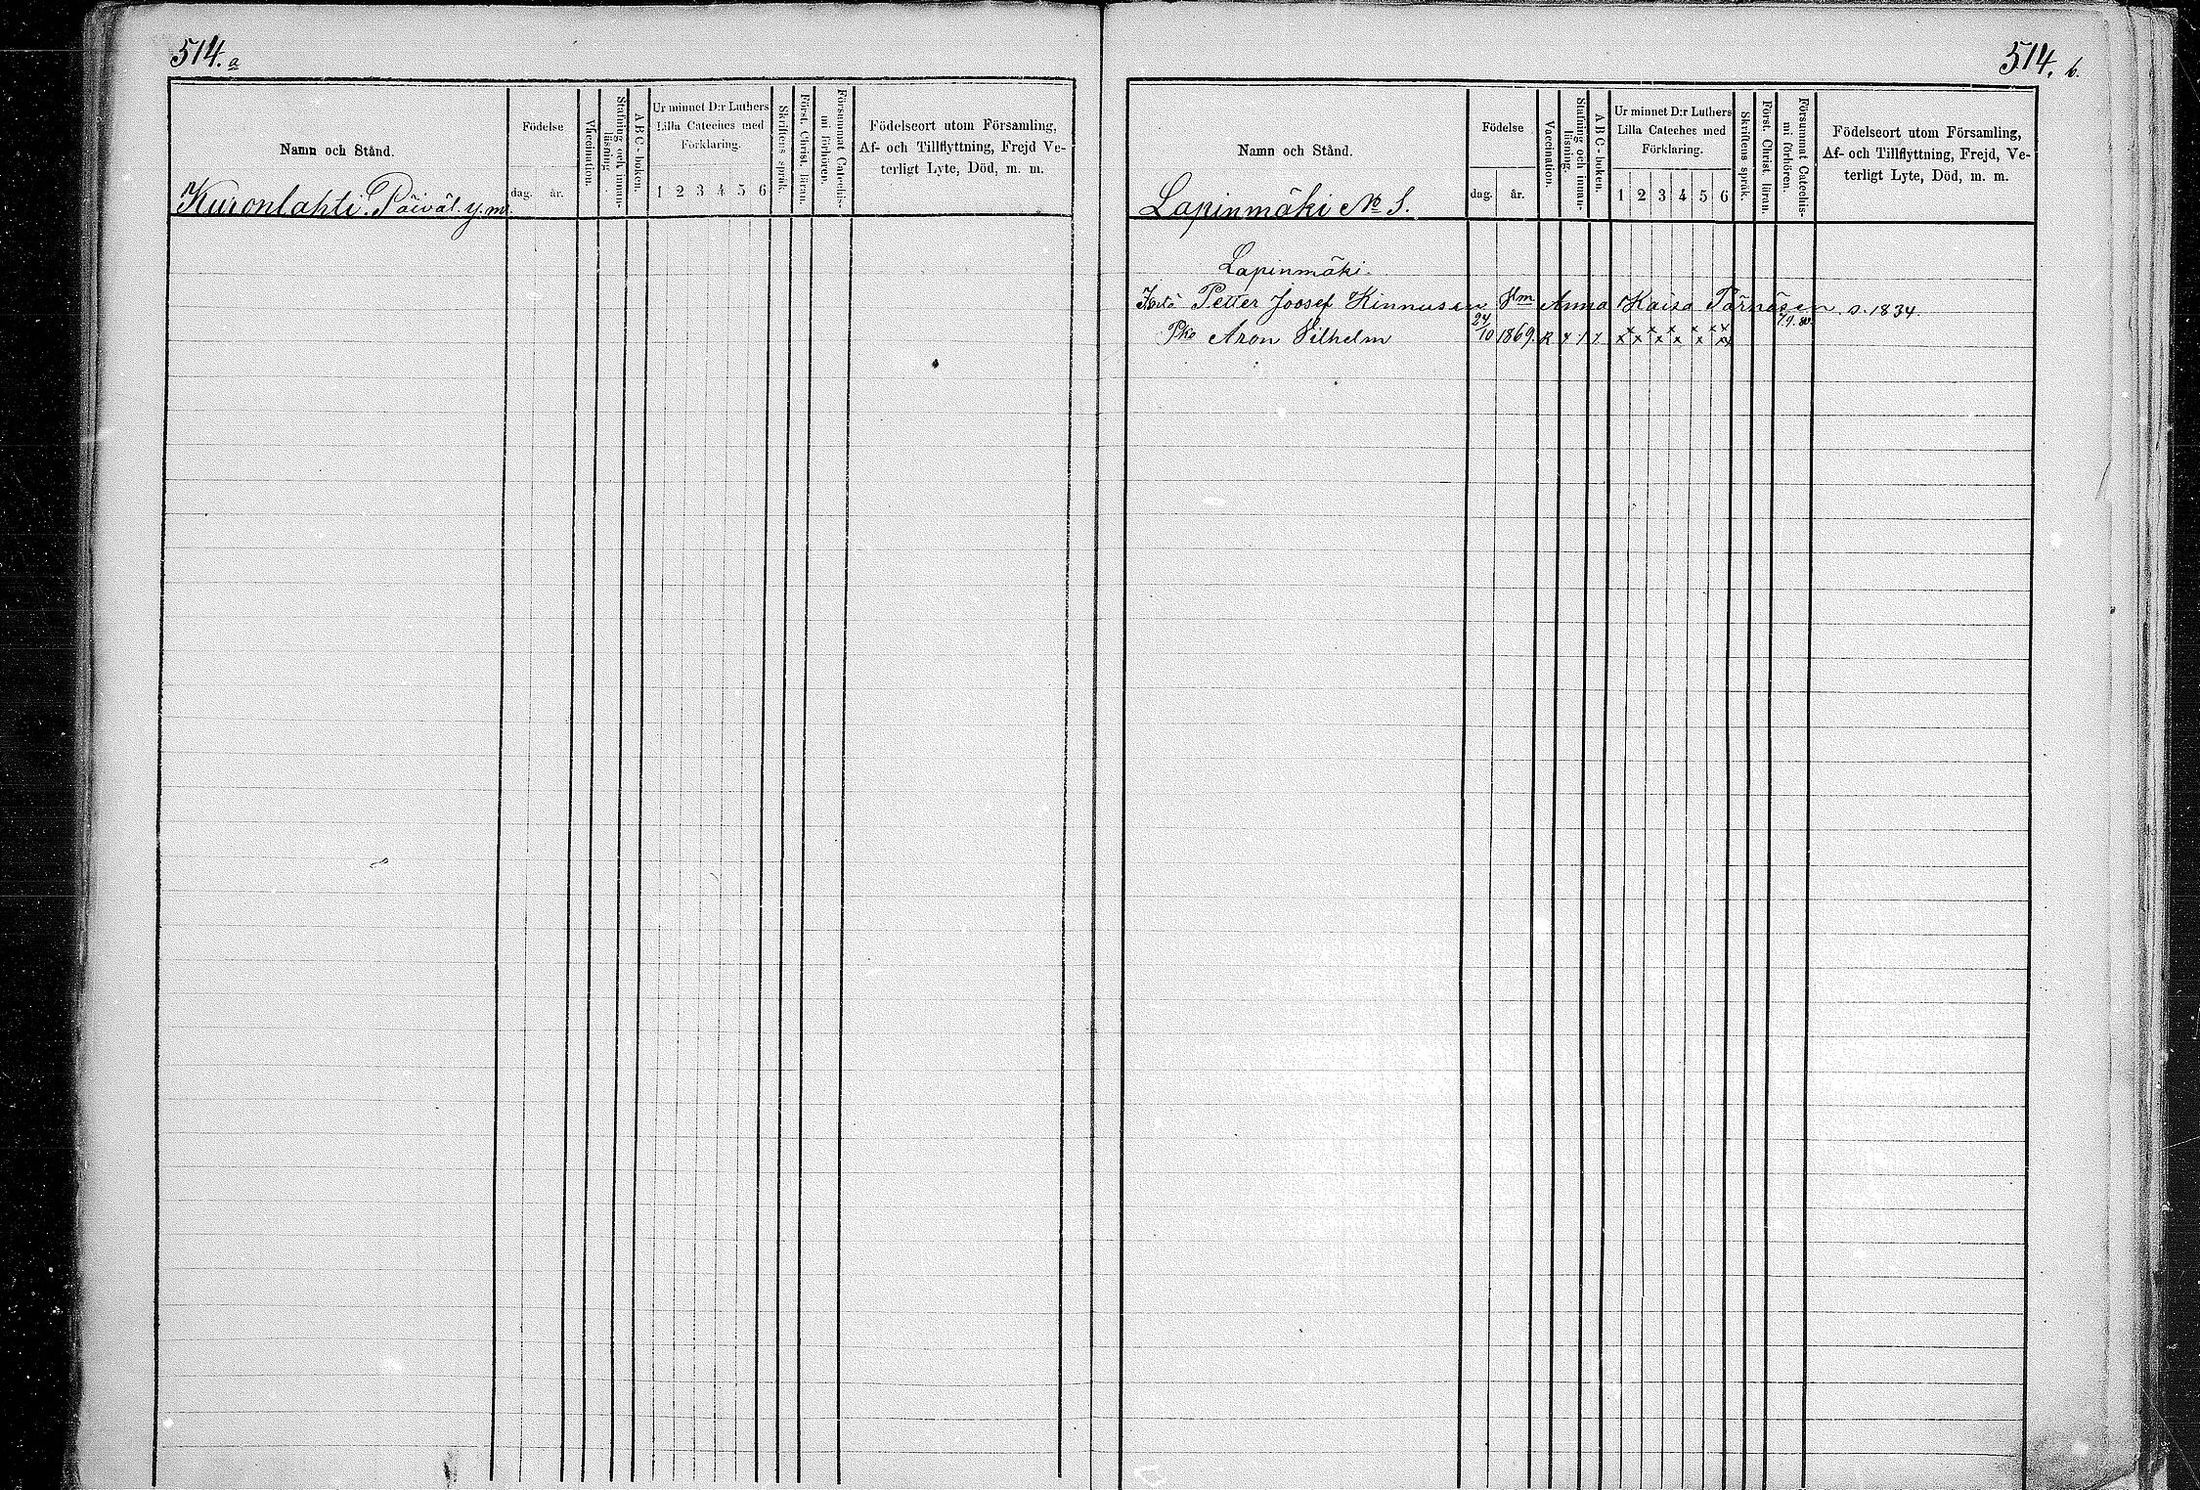 514. a
Namn och Stånd.
Födelse
dag. år.
Vaccination.
Stafning och innanläsning
A B C - boken.
Ur minnet D:r Luthers
Lilla Cateches med
Förklaring.
1 2 3 4 5 6
Skriftens språk.
Först. Christ. läran.
Försummat Catechismi förhören.
Födelseort utom Församling,
Af- och Tillflyttning, Frejd Ve-
terligt Lyte, Död, m. m.
Kuronlahti. Päiväl. y.m.
514. b.
Namn och Stånd.
Födelse
dag. år.
Vaccination.
Stafning och innanläsning.
A B C - boken.
Ur minnet D:r Luthers
Lilla Cateches med
Förklaring.
1 2 3 4 5 6
Skriftens språk.
Först. Christ. läran.
Försummat Catechismi förhören.
Födelseort utom Församling,
Af- och Tillflyttning, Frejd, Ve-
terligt Lyte, Död, m. m.
Lapinmäki No 1.
Lapinmäki.
Petter Joosef Kinnusen Anna Kaisa s. 1834.
Pko Aron Vilhelm 24/10 1869. R